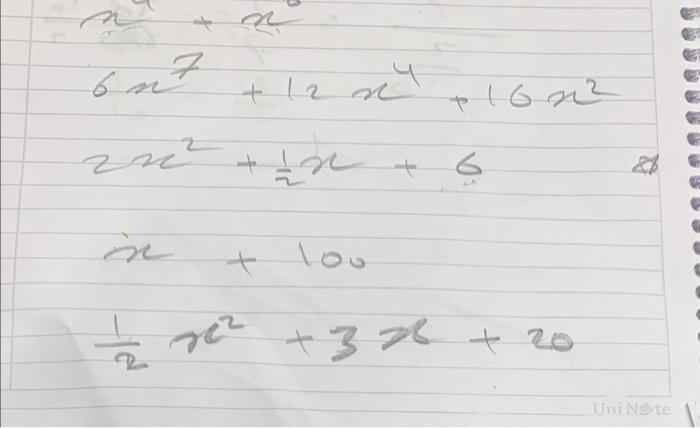 6x⁷ + 12x⁴ + 16x²
2x² + ½x + 6
x + 100
½x² + 3x + 20
UniNote